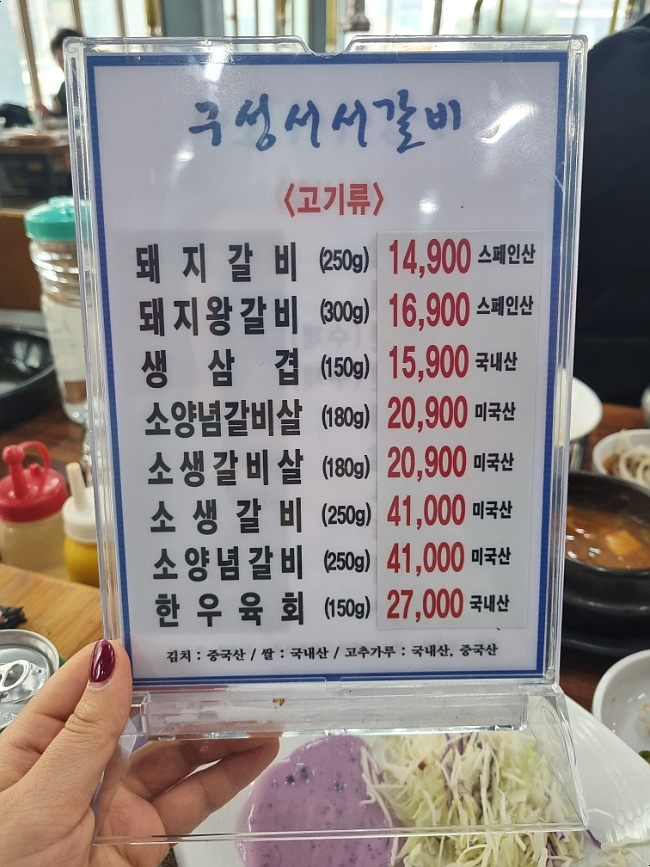 구성서서갈비
〈고기류〉
돼지갈비 (250g) 14,900 스페인산
돼지왕갈비 (300g) 16,900 스페인산
생삼겹 (150g) 15,900 국내산
소양념갈비살 (180g) 20,900 미국산
소생갈비살 (180g) 20,900 미국산
소생갈비 (250g) 41,000 미국산
소양념갈비 (250g) 41,000 미국산
한우육회 (150g) 27,000 국내산
김치 : 중국산 / 쌀 : 국내산 / 고추가루 : 국내산, 중국산